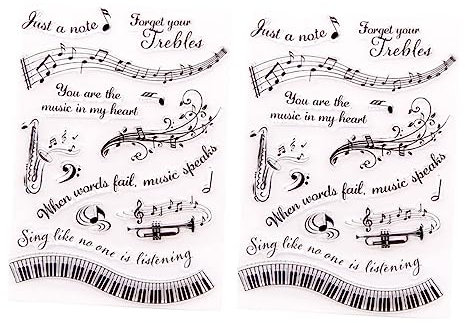 Just a note
Forget your
Trebles
You are the
music in my heart
When words fail, music speaks
Sing like no one is listening
Just a note
Forget your
Trebles
You are the
music in my heart
When words fail, music speaks
Sing like no one is listening